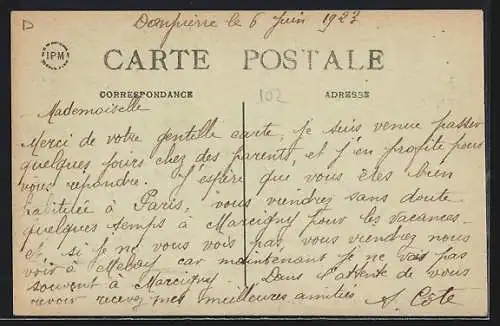 D
Dompierre le 6 Juin 1923
IPM
CARTE POSTALE
CORRESPONDANCE
102
ADRESSE
Mademoiselle
Merci de votre gentille carte, je suis venue passer
quelques jours chez des parents, et j'en profite pour
vous repondre. J'espère que vous êtes bien
habituée à Paris, vous viendrez sans doute
quelques temps à Marcigny pour les vacances.
et si je ne vous vois pas vous viendrez nous
voir à Melay car maintenant je ne vais pas
souvent à Marcigny. Dans l'attente de vous
revoir recevez mes meilleures amitiés. A.